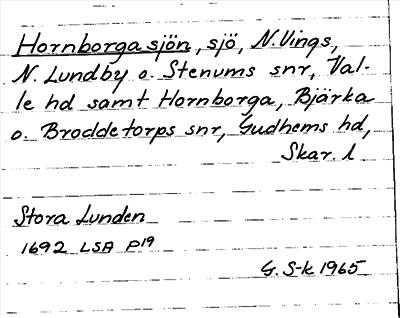 Hornborgasjön, sjö, N. Vings,
N. Lundby o. Stenums snr, Val-
le hd samt Hornborga, Bjärka
o. Broddetorps snr, Gudhems hd,
Skar. l
Stora Lunden
1692 LSA P19
G. S-k 1965